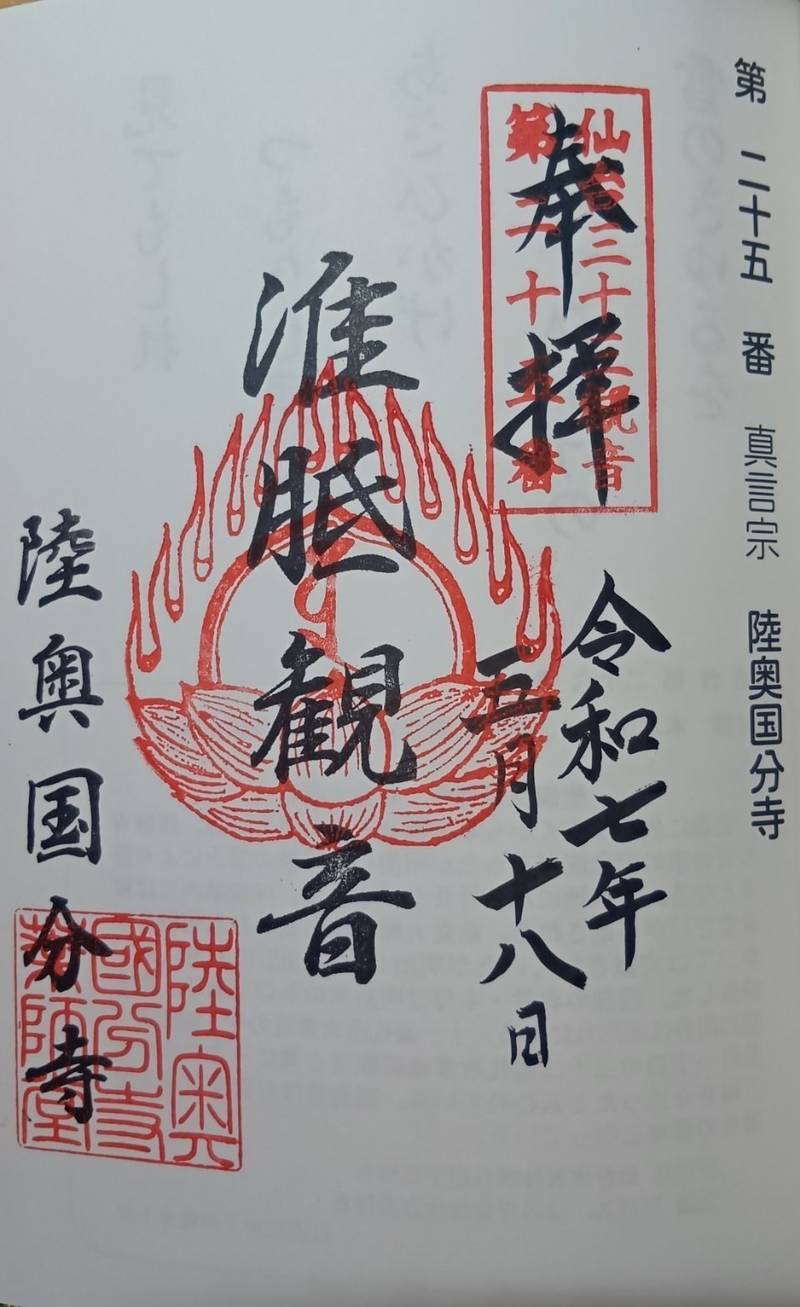 第二十五番 真言宗 陸奥国分寺
仙台三十三観音
第二十五番
奉拝
令和七年
五月十八日
准胝観音
陸奥国分寺
陸奥
國分寺
薬師堂